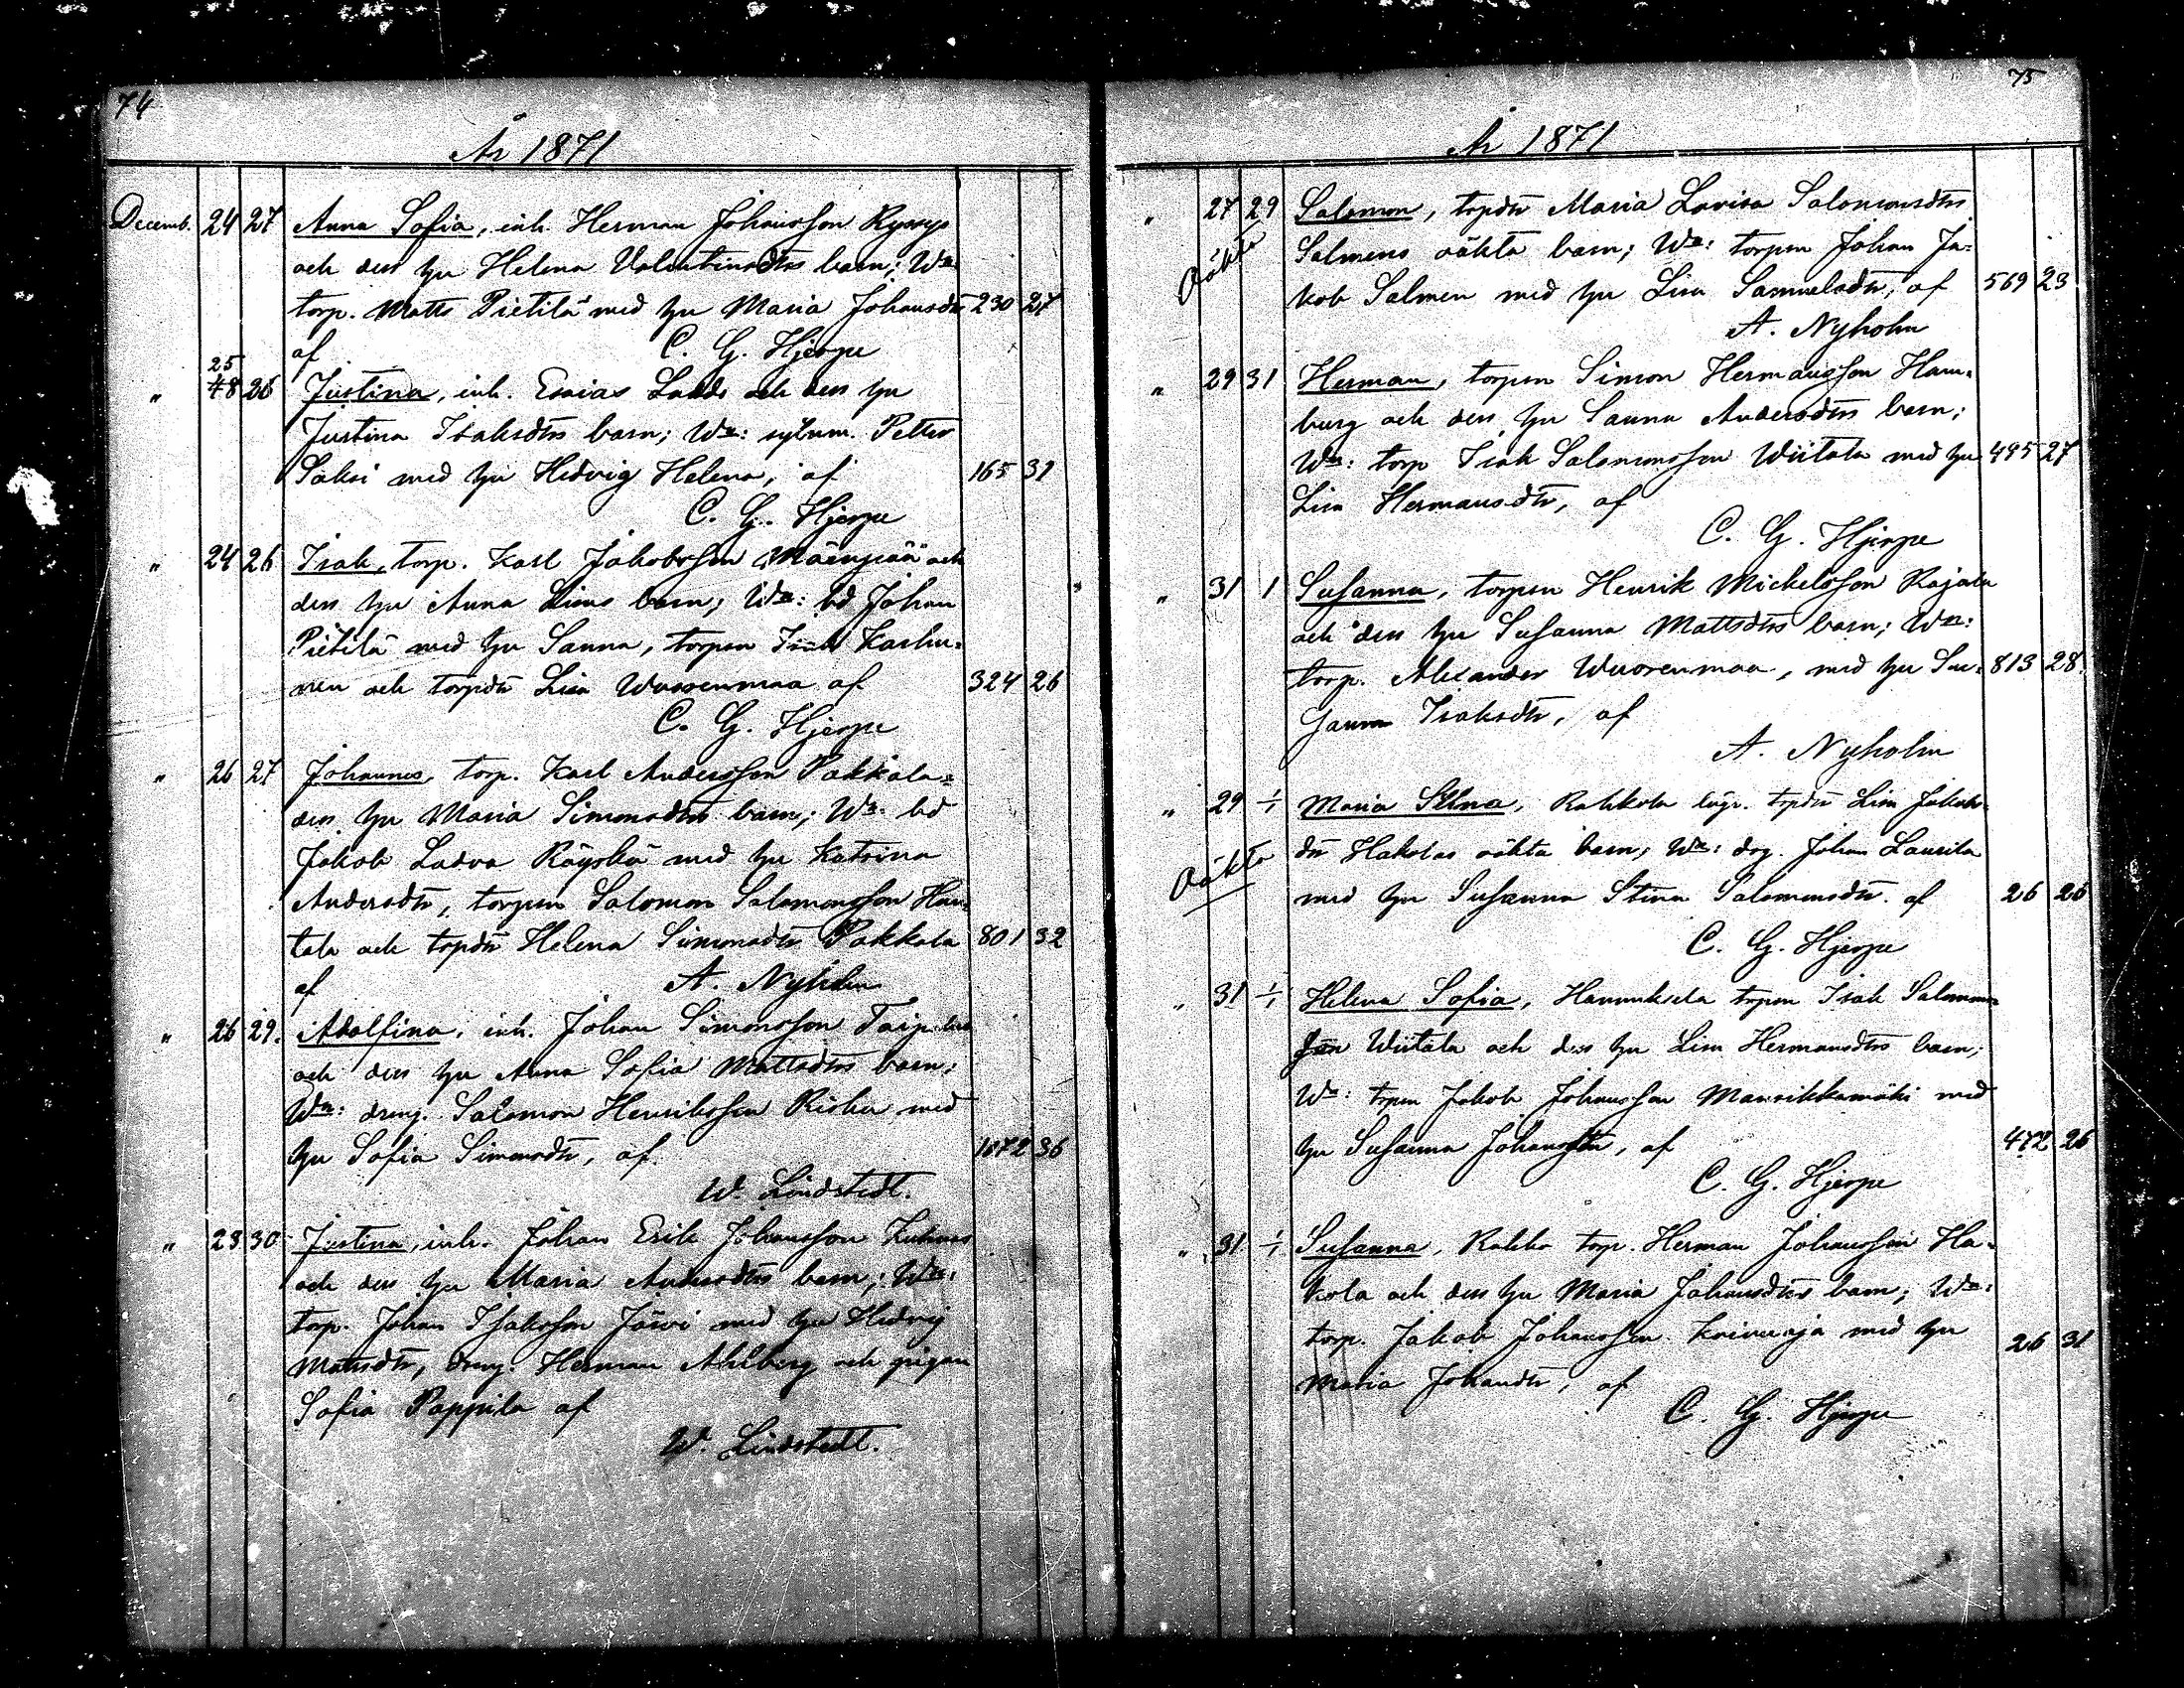 74
År 1871
Decemb. 24 27 Anna Sofia, inh. Herman Johansson Ryssys
och dess hu Helena Valentinsdtrs barn; Wn:
torp. Matts Pietilä med hu Maria Johansdtr 230 27
af C. G. Hjerpe
25
" 48 26 Justina, inh. Esaias Ladd och dess hu
Justina Isaksdtrs barn; Wn: sytnm. Petter
Saksi med hu Hedvig Helena, af 165 31
C. G. Hjerpe
" 24 26 Isak, torp. Karl Jakobsson Mäenpää och
dess hu Anna Lisas barn; Wn: bd Johan
Pietilä med hu Sanna, torpsn Isak Karhu-
nen och torpdtr Lisa Wuorenmaa af 324 26
C. G. Hjerpe
" 26 27 Johannes, torp. Karl Andersson Pakkala
dess hu Maria Simonsdtrs barn; Wn: bd
Jakob Ladva Räyskä med hu Katrina
Andersdtr, torpsn Salomon Salomonsson Han-
tala och torpdtr Helena Simonsdtr Pakkala 801 32
af A. Nyholm
" 26 29. Adolfina, inh. Johan Simonsson Taipalus
och dess hu Anna Sofia Mattsdtrs barn;
Wn: dreng. Salomon Henriksson Risku med
hu Sofia Simonsdtr, af 1072 36
W. Lindstedt.
" 28 30 Justina, inh. Johan Erik Johansson
och dess hu Maria Andersdtrs barn; Wn:
torp. Johan Isaksson Järvi med hu Hedvig
Mattsdtr, dreng. Herman Ahlberg och pigan
Sofia Pappila af
W. Lindstedt.
75
År 1871
" 27 29 Salomon, torpdtr Maria Lovisa Salomonsdtrs
Oäkta Salmens oäkta barn; Wn: torpsn Johan Ja-
kob Salmen med hu Lisa Samuelsdtr, af 569 23
A. Nyholm
" 29 31 Herman, torpsn Simon Hermansson Ham-
burg och dess hu Sanna Andersdtrs barn;
Wn: torp Isak Salomonsson Wiitala med hu 495 27
Lisa Hermansdtr, af
C. G. Hjerpe
" 31 1 Susanna, torpsn Henrik Mickelsson Rajala
och dess hu Susanna Mattsdtrs barn; Wn:
torp. Alexander Wuorenmaa, med hu Su- 813 28
sanna Isaksdtr, af
A. Nyholm
" 29 1/1 Maria Stina, Rahkola lägr. torpdtr Lisa Jakobs-
Oäkta dtr Hakolas oäkta barn; Wn: drg. Johan Laurila
med hu Susanna Stina Salomonsdtr. af 26 26
C. G. Hjerpe
" 31 1/1 Helena Sofia, Hannuksela torpsn Isak Salomon-
sson Wiitala och dess hu Lisa Hermansdtrs barn;
Wn: torpsn Jakob Johansson Mansikkamäki med
hu Susanna Johansdtr, af 472 26
C. G. Hjerpe
" 31 1/1 Susanna, Rahko torp. Herman Johansson Ha-
kola och dess hu Maria Johansdtrs barn; Wn:
torp. Jakob Johansson Koivuoja med hu 26 31
Maria Johansdtr, af
C. G. Hjerpe